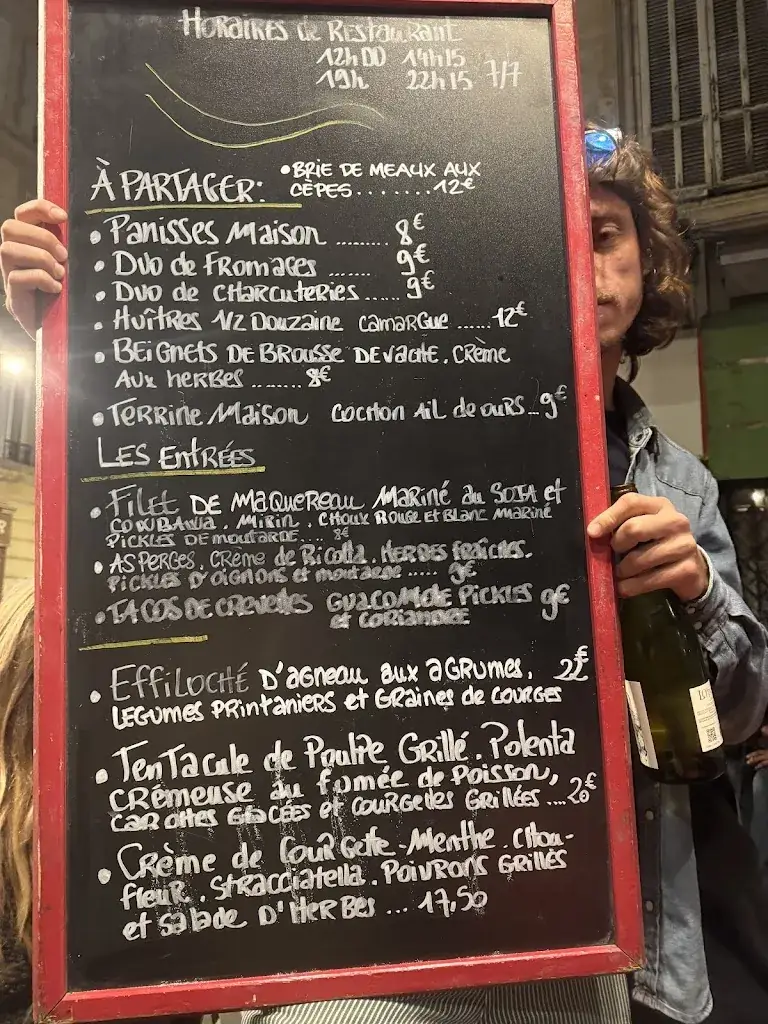 Horaires de Restaurant
12h00 14h15
19h 22h15 7/7
À PARTAGER:
• BRIE DE MEAUX AUX
CÈPES.......12€
• Panisses Maison .......... 8€
• Duo de Fromages ....... 9€
• Duo de Charcuteries..... 9€
• Huîtres 1/2 Douzaine Camargue ......12€
• Beignets de Brousse de vache. Crème
aux herbes ........ 8€
• Terrine Maison Cochon ail de ours...9€
Les Entrées
• Filet de Maquereau Mariné au Soja et
COMBAWA. Mirin. Choux Rouge et Blanc Mariné
Pickles de moutarde.... 8€
• Asperges. Crème de Ricotta. Herbes fraîches.
Pickles d'oignons et moutarde ..... 9€
• Tacos de Crevettes Guacomole Pickles 9€
et coriandre
• Effiloché d'agneau aux agrumes,
Légumes printaniers et Graines de courges
• Tentacule de Poulpe Grillé. Polenta
crémeuse au fumée de poisson,
carottes glacées et courgettes grillées ....20€
• Crème de Courgette-Menthe. Chou-
fleur. Stracciatella. Poivrons grillés
et salade d'Herbes ... 17,50